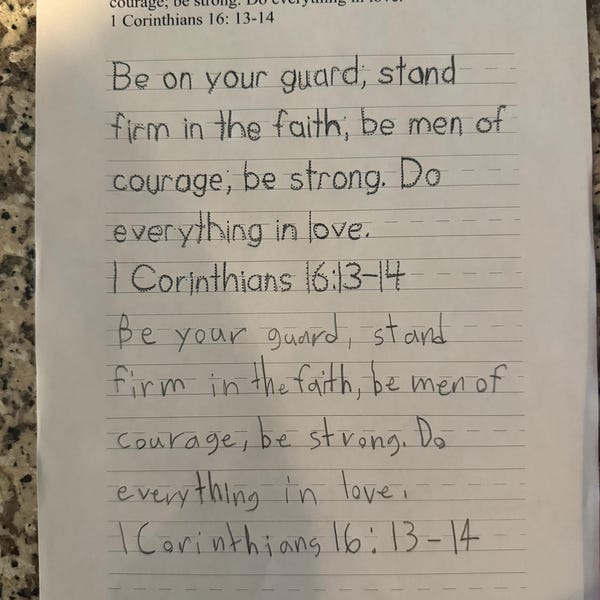 courage; be strong. Do everything in love.
1 Corinthians 16: 13-14
Be on your guard; stand
firm in the faith; be men of
courage; be strong. Do
everything in love.
1 Corinthians 16:13-14
Be your guard, stand
firm in the faith, be men of
courage, be strong. Do
everything in love.
1 Corinthians 16: 13-14